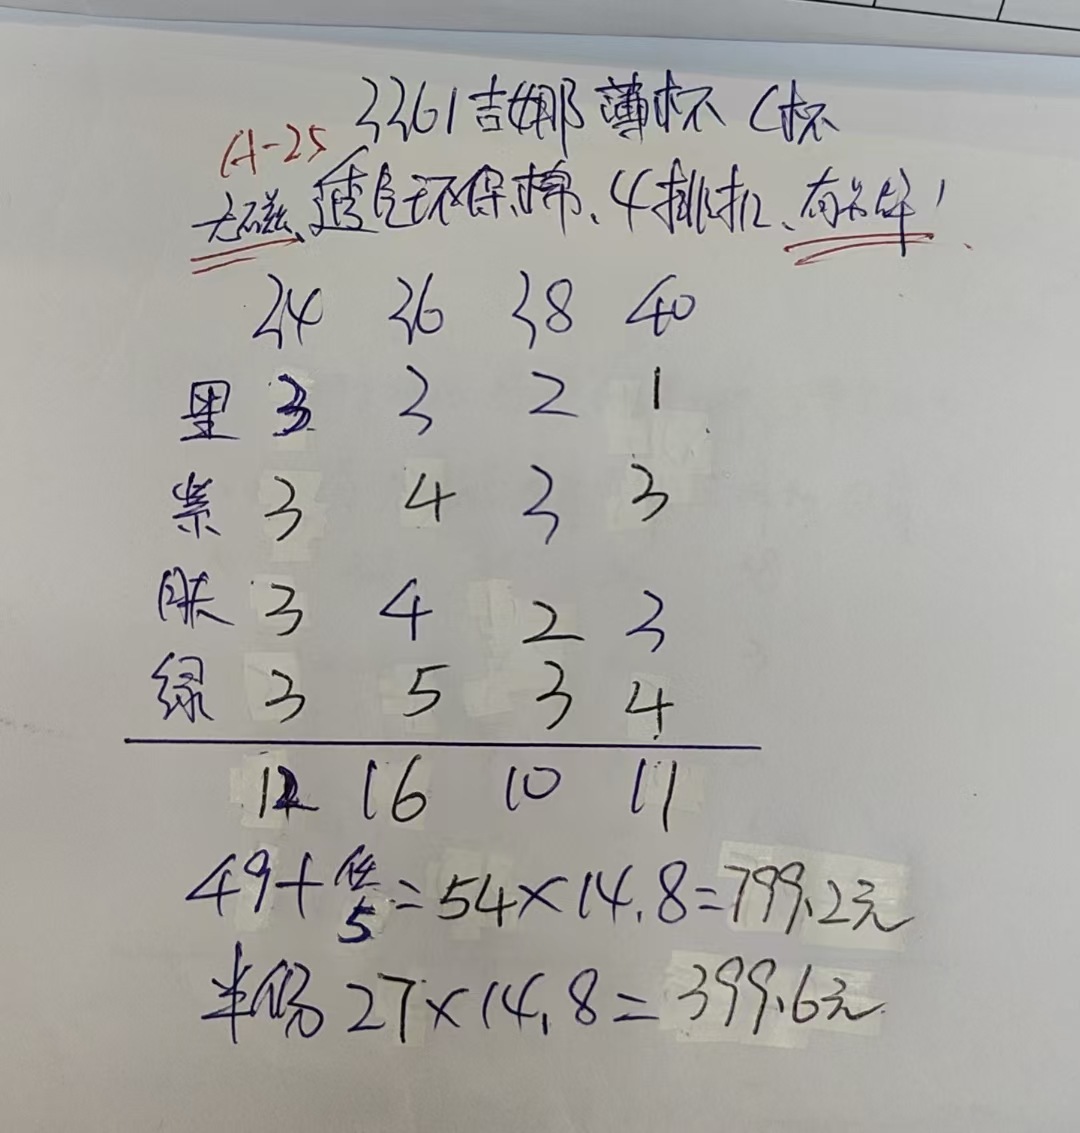 3361吉娜薄杯C杯
A-25
无磁、透气环保棉、4排扣、有吊牌!
34 36 38 40
黑 3 3 2 1
紫 3 4 3 3
肤 3 4 2 3
绿 3 5 3 4
12 16 10 11
49+ 5=54×14.8=799.2元
半份 27×14.8=399.6元